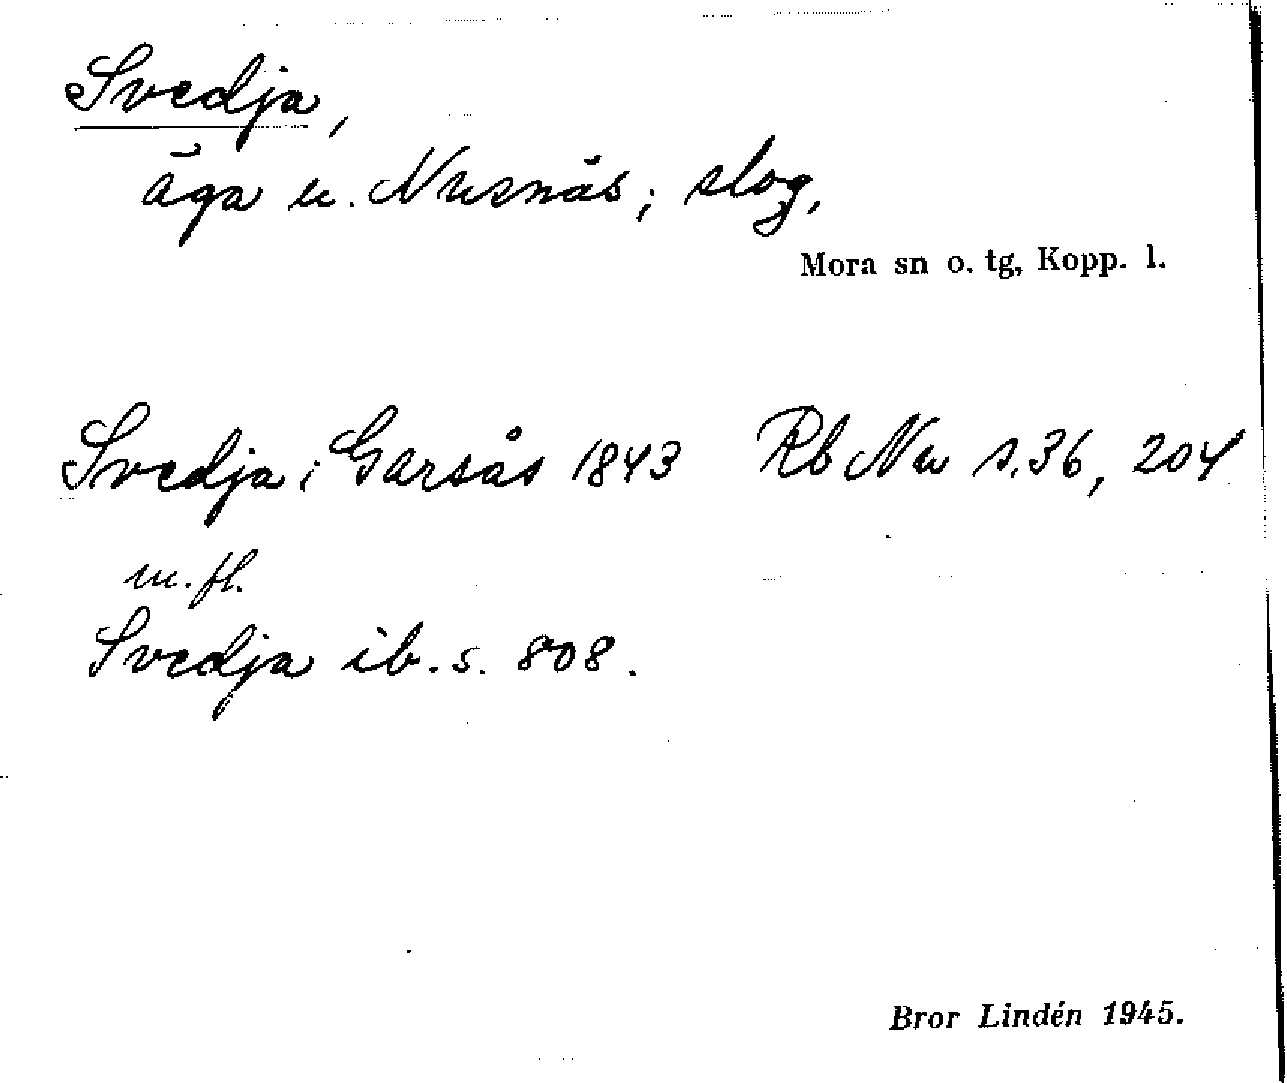 Svedja,
äga u. Nusnäs; slog,
Mora sn o. tg, Kopp. l.
Svedja i Garsås 1843 Rb Nu s. 36, 204
m. fl.
Svedja ib. s. 808.
Bror Lindén 1945.